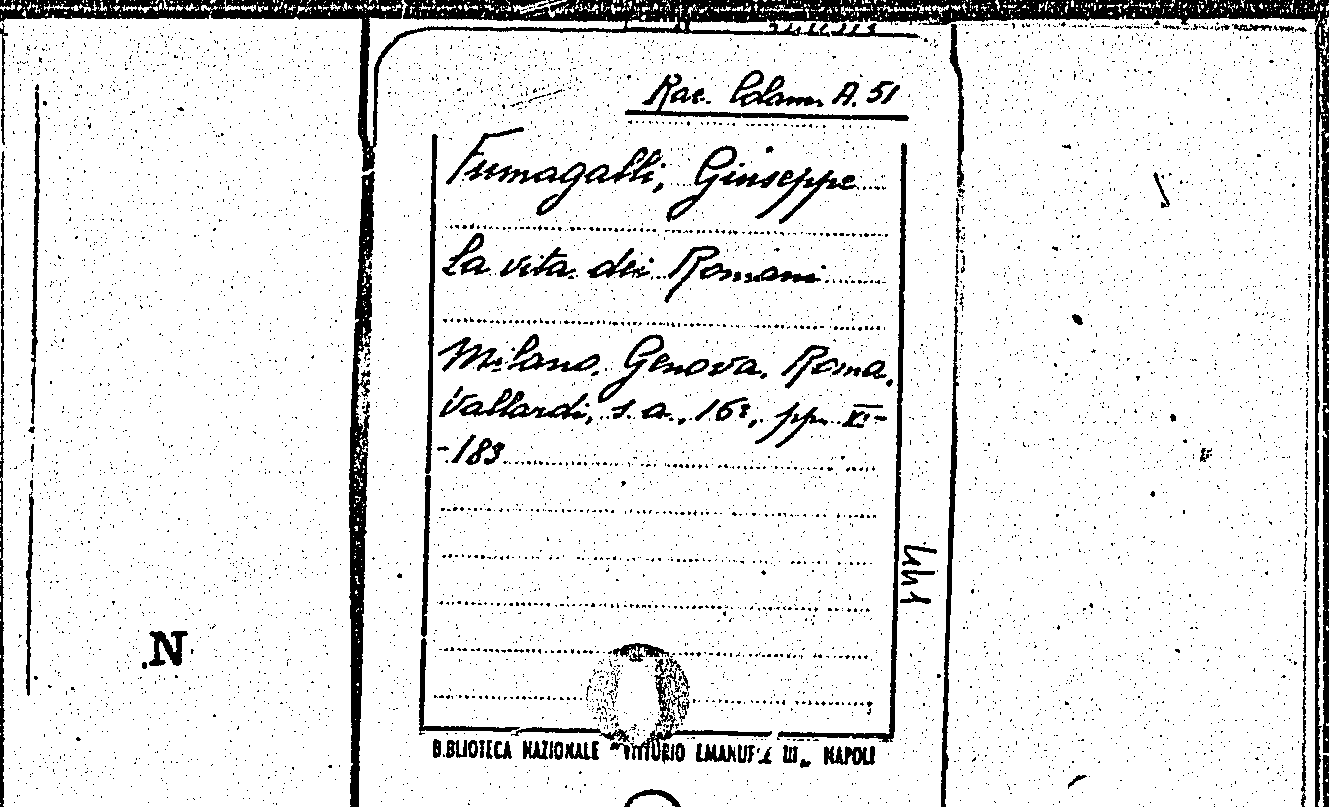 Rac. Colam. A. 51
Fumagalli, Giuseppe
La vita dei Romani
Milano. Genova. Roma.
Vallardi, s. a., 16º, pp. XI-
-183
N
BIBLIOTECA NAZIONALE "VITTORIO EMANUELE III" NAPOLI